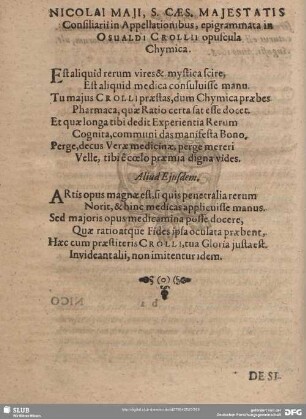 NICOLAI MAJI, S. CÆS. MAJESTATIS
Consiliarii in Appellationibus, epigrammata in
OSUALDI CROLLII opuscula
Chymica.
Est aliquid rerum vires & mystica scire,
Est aliquid medica consuluisse manu.
Tu majus CROLLI præstas, dum Chymica præbes
Pharmaca, quæ Ratio certa sat esse docet.
Et quæ longa tibi dedit Experientia Rerum
Cognita, communi das manifesta Bono,
Perge, decus Veræ medicinæ, perge mereri
Velle, tibi è cœlo præmia digna vides.
Aliud Ejusdem.
ARtis opus magnæ est, si quis penetralia rerum
Norit, & hinc medicas applicuisse manus.
Sed majoris opus medicamina posse docere,
Quæ ratio atque Fides ipsa oculata præbent,
Hæc cum præstiteris CROLLI, tua Gloria justa est.
Invideant alii, non imitentur idem.
b 2
DE SI-
SLUB
DFG